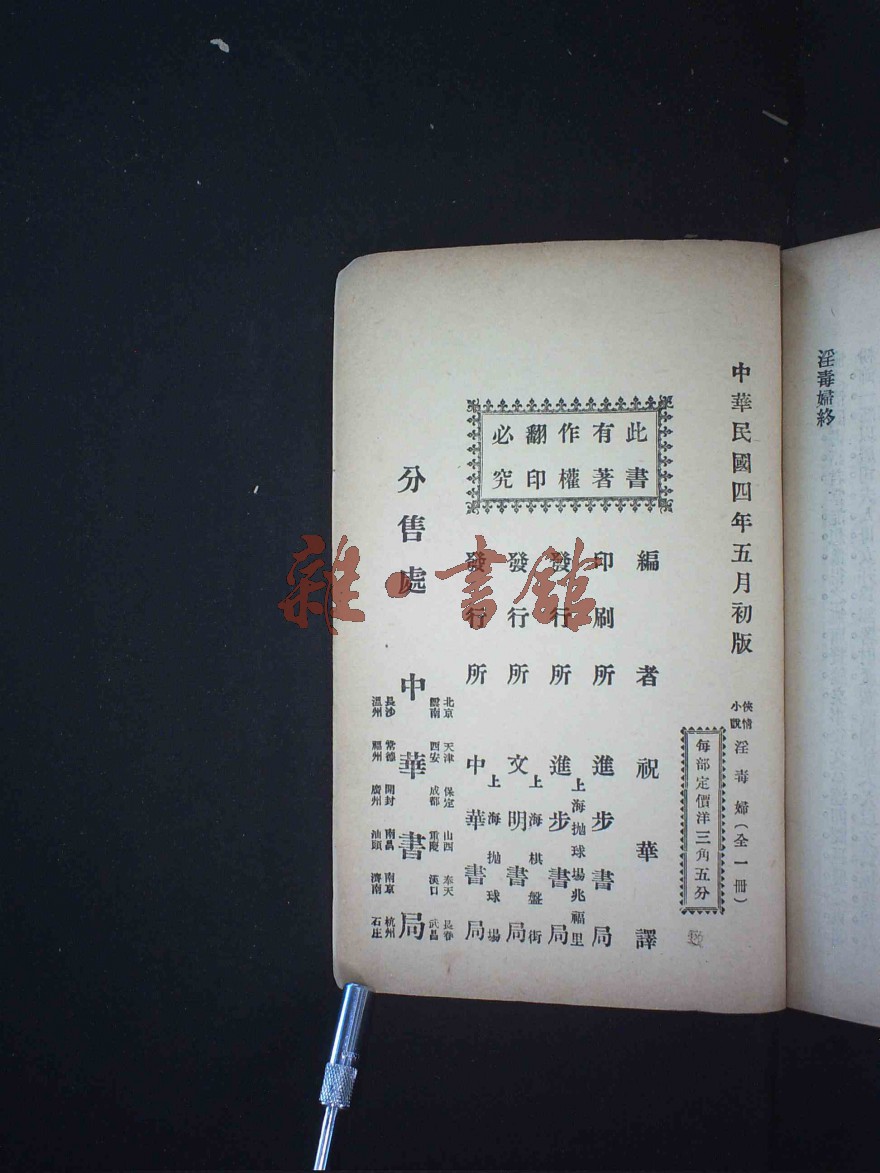 淫毒婦終
中華民國四年五月初版
俠情小說
淫毒婦（全一冊）
每部定價洋三角五分
此書有著作權翻印必究
編者 祝華譯
印刷所 進步書局
上海拋球場兆福里
發行所 進步書局
上海棋盤街
發行所 文明書局
上海拋球場
發行所 中華書局
北京 天津 保定 山西 奉天 長春
雲南 西安 成都 重慶 漢口 武昌
分售處 中華書局
長沙 常德 開封 南昌 南京 杭州
溫州 福州 廣州 汕頭 濟南 石庄
雜·書館